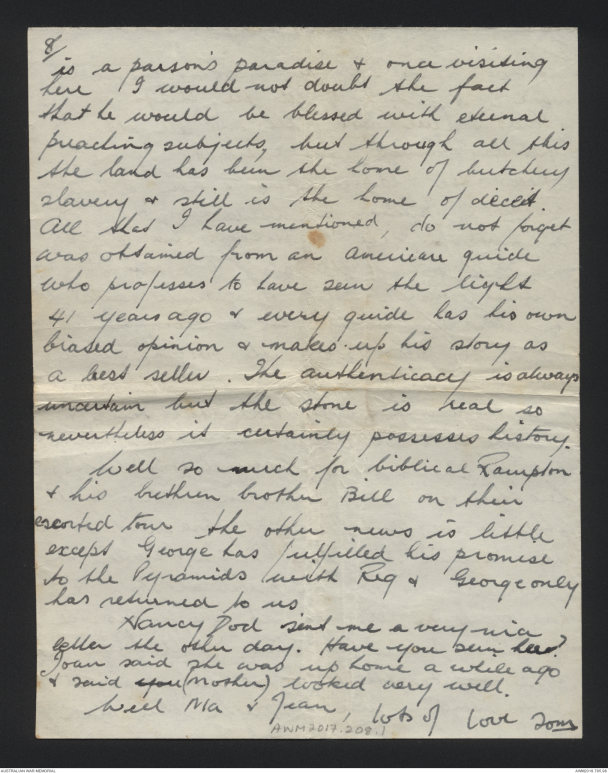 8/
is a parson's paradise & once visiting
here I would not doubt the fact
that he would be blessed with eternal
preaching subjects, but through all this
the land has been the home of butchery
slavery & still is the home of deceit
All that I have mentioned, do not forget
was obtained from an American guide
who professes to have seen the light
41 years ago & every guide has his own
biased opinion & makes up his story as
a best seller. The authenticacy is always
uncertain but the stone is real so
nevertheless it certainly possesses history.
Well so much for biblical Rampton
& his brethren brother Bill on their
escorted tour the other news is little
except George has fulfilled his promise
to the Pyramids with Reg & George only
has returned to us
Nancy Dod sent me a very nice
letter the other day. Have you seen her?
Joan said she was up home a while ago
& said you (Mother) looked very well.
Well Ma & Jean, lots of love Tom
AWM2017.208.1
AUSTRALIAN WAR MEMORIAL